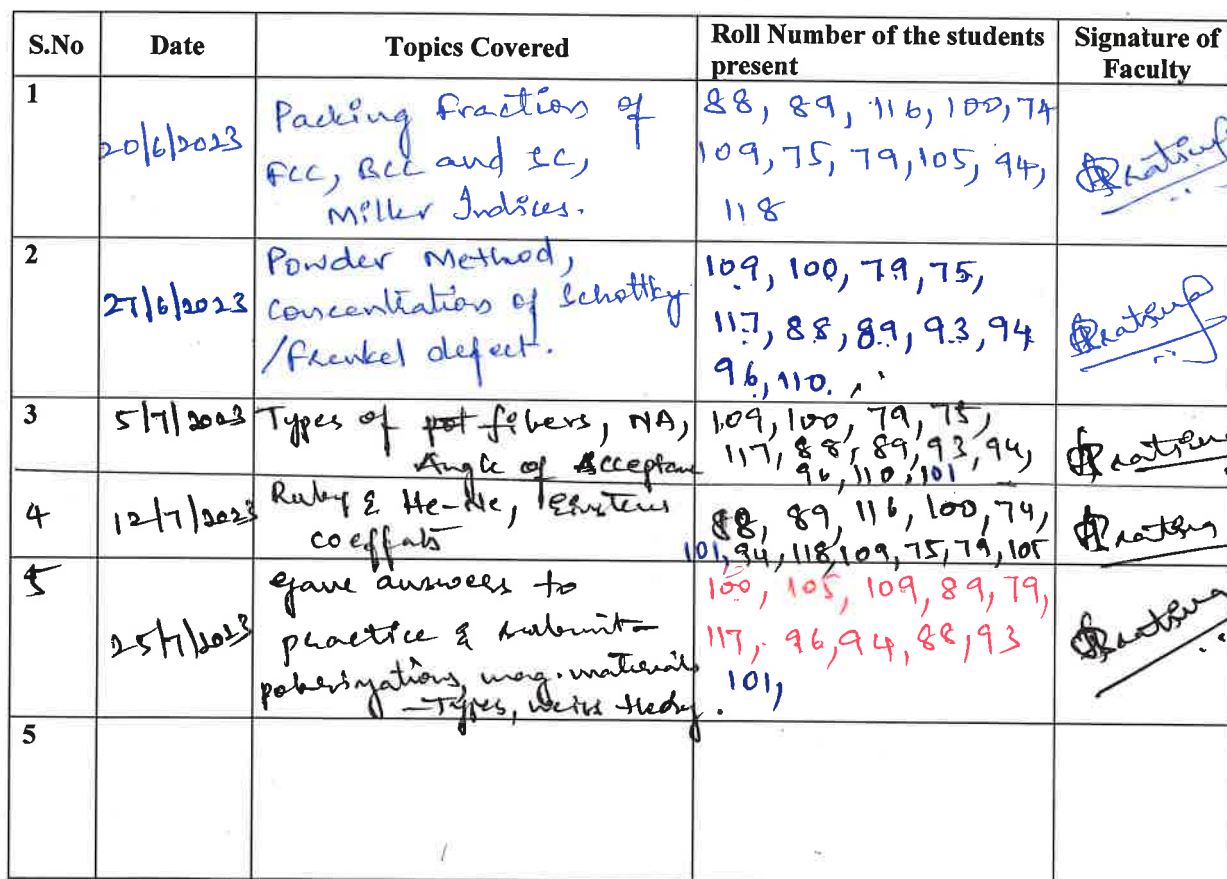 S.No Date Topics Covered Roll Number of the students present Signature of Faculty
1 20/6/2023
Packing Fraction of
FCC, BCC and SC,
Miller Indices.
88, 89, 116, 100, 74
109, 75, 79, 105, 94,
118
2 27/6/2023
Powder Method,
Concentration of Schottky
/Frenkel defect.
109, 100, 79, 75,
117, 88, 89, 93, 94
96, 110.
3 5/7/2023
Types of fibers, NA,
Angle of Acceptane
109, 100, 79, 75,
117, 88, 89, 93, 94,
96, 110, 101
4 12/7/2023
Ruby & He-Ne, Einsteins
coeffats
88, 89, 116, 100, 74,
101, 94, 118, 109, 75, 79, 105
5 25/7/2023
gave answers to
practice & submit-
polarizations, mag. materials
-Types, weiss theory.
100, 105, 109, 89, 79,
117, 96, 94, 88, 93
101,
5